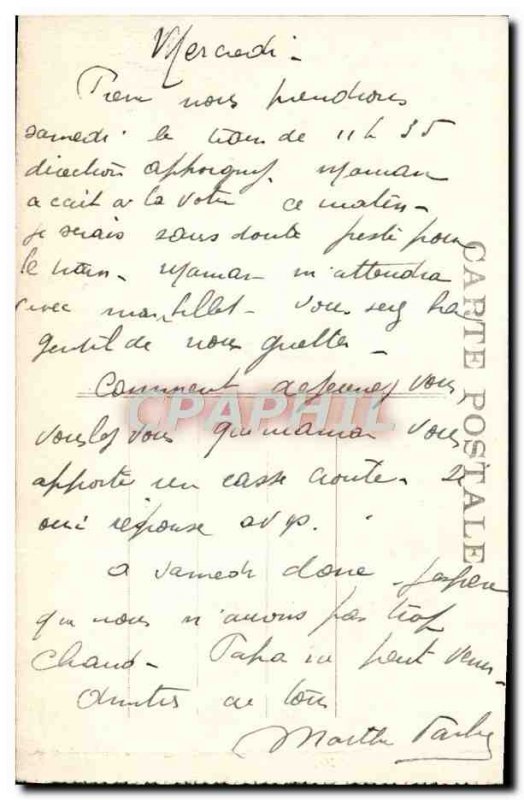 Mercredi -
nous prendrons
samedi le train de 11h 35
direction Appoigny. Maman
a écrit à la votre ce matin -
je serais sans doute juste pour
le train - Maman m'attendra
avec mon billet - Vous serez
gentil de nous guetter -
Comment dejeunez vous
CPAPHIL
voulez vous que maman vous
apporte un casse croute - Si
oui réponse
a samedi donc - J'espère
que nous n'aurons pas trop
chaud - Papa ne peut venir -
Amitiés de tous
Marthe
CARTE POSTALE